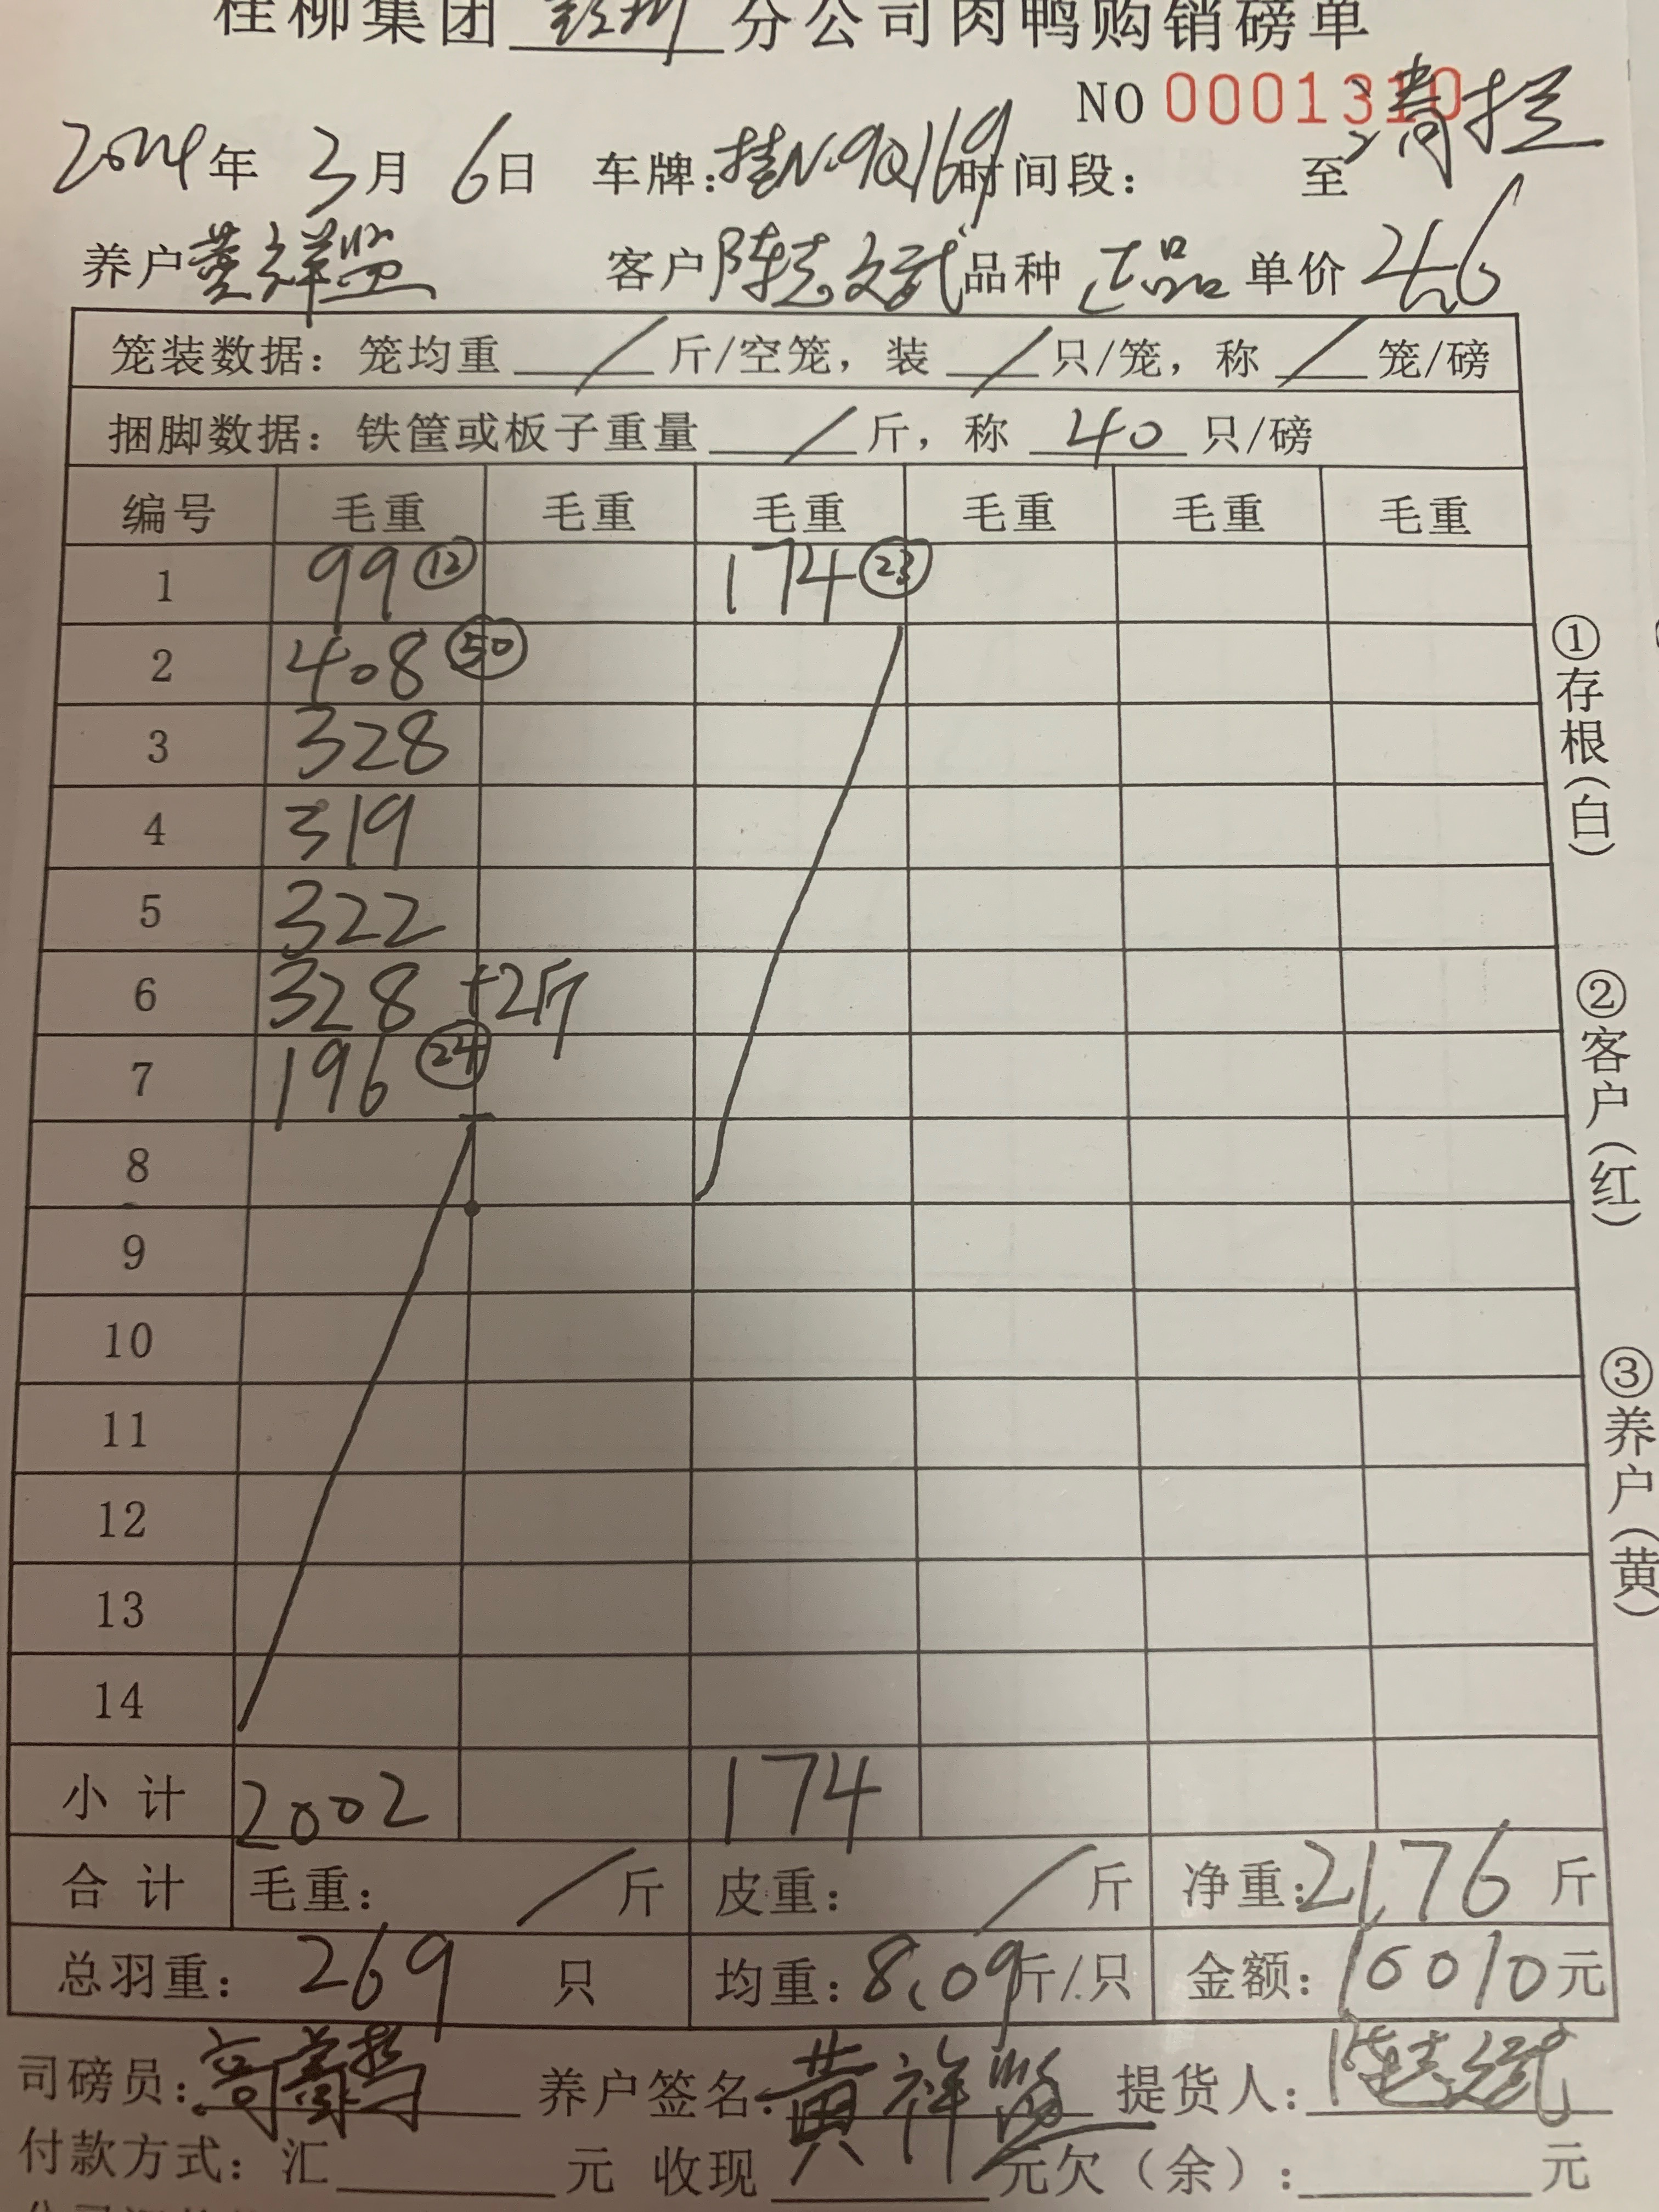 桂柳集团 分公司肉鸭购销磅单
NO 0001310
清拦
2024年 3月 6日 车牌:桂N·9Q169 时间段: 至
养户 黄祥 客户 陈志斌 品种 正品 单价 4.6
笼装数据: 笼均重 / 斤/空笼, 装 / 只/笼, 称 / 笼/磅
捆脚数据: 铁筐或板子重量 / 斤, 称 40 只/磅
编号 毛重 毛重 毛重 毛重 毛重 毛重
1 99 ⑫ 174 ㉓
2 408 ㊿
3 328
4 319
5 322
6 328 +2斤
7 196 ㉔
8
9
10
11
12
13
14
小计 2002 174
合计 毛重: / 斤 皮重: / 斤 净重: 2176 斤
总羽重: 269 只 均重: 8.09 斤/只 金额: 10010 元
司磅员: 养户签名: 黄祥 提货人: 陈志斌
付款方式: 汇 元 收现 元欠(余): 元
①存根(白)
②客户(红)
③养户(黄)